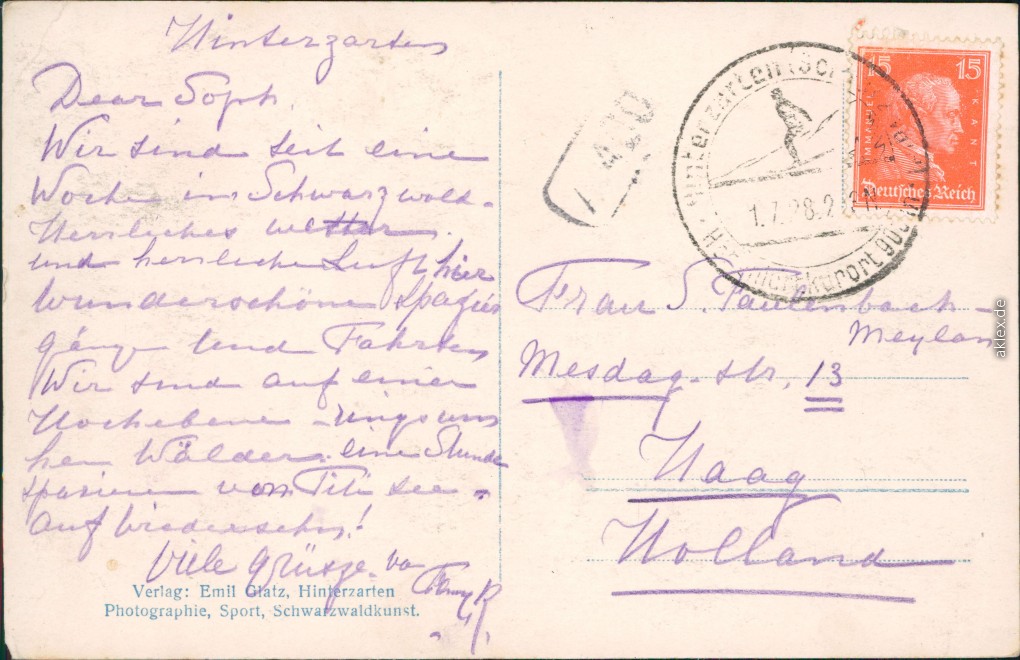 Hinterzarten
Dear Soph.
Wir sind seit eine
Woche im Schwarzwald -
Herrliches wetter.
und herrliche Luft, hier
wunderschöne spazier
gänge und Fahrten
Wir sind auf einer
Hochebene - rings um
her Wälder. eine Stunde
spazieren vom Titi see -
auf wiedersehn!
Viele grüsze. von
Verlag: Emil Glatz, Hinterzarten
Photographie, Sport, Schwarzwaldkunst.
15 15
IMMANUEL KANT
Deutsches Reich
Hinterzarten (Sch
1.7.28.2
Höhenluftkurort 900
Frau S. Taulenbach -
Meylan
Mesdag - str, 13
Haag
Holland
aklex.de